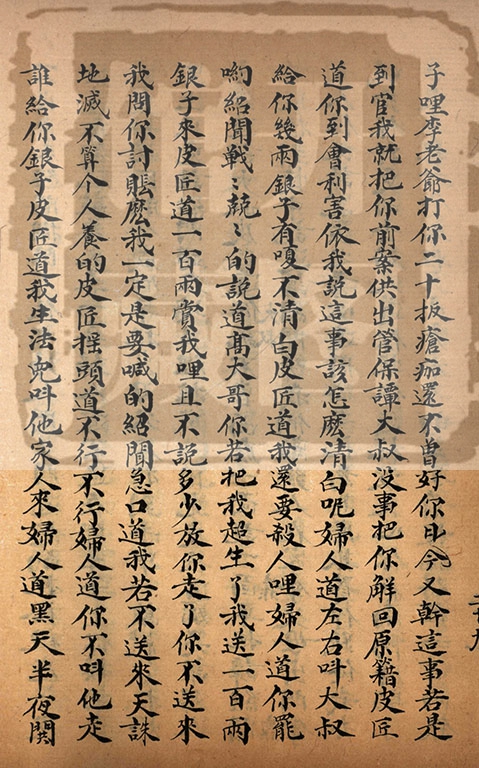 子哩李老爺打你二十扳瘡痂還不曾好你日今又幹這事若是
到官我就把你前案供出管保譚大叔没事把你解回原籍皮匠
道你到會利害依我說這事該怎麽清白呢婦人道左右呌大叔
給你幾兩銀子有嗄不清白皮匠道我還要殺人哩婦人道你罷
喲紹聞戦〻兢〻的說道髙大哥你若把我超生了我送一百兩
銀子來皮匠道一百兩賞我哩且不説多少放你走了你不送來
我問你討賬麽我一定是要喊的紹聞急口道我若不送來天誅
地滅不算个人養的皮匠揺頭道不行不行婦人道你不呌他走
誰給你銀子皮匠道我生法免呌他家人來婦人道黑天半夜関